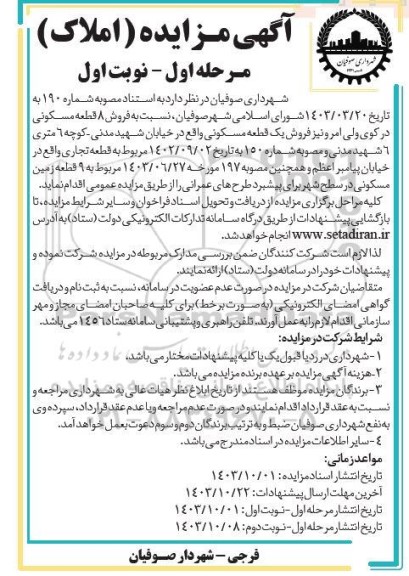 آگهی مـزایده (املاک)
مـرحله اول - نوبت اول
شهرداری صوفیان
شهرداری صوفیان در نظر دارد به استناد مصوبه شماره ۱۹۰ به
تاریخ ۱۴۰۳/۰۳/۲۰ شورای اسلامی شهر صوفیان، نسبت به فروش ۸ قطعه مسکونی
در کوی ولی امر و نیز فروش یک قطعه مسکونی واقع در خیابان شهید مدنی-کوچه ۶ متری
۶ شهید مدنی و مصوبه شماره ۱۵۰ به تاریخ ۱۴۰۲/۰۹/۰۲ مربوط به قطعه تجاری واقع در
خیابان پیامبر اعظم و همچنین مصوبه ۱۹۷ مورخه ۱۴۰۳/۰۶/۲۷ مربوط به ۹ قطعه زمین
مسکونی در سطح شهر برای پیشبرد طرح های عمرانی را از طریق مزایده عمومی اقدام نماید.
کلیه مراحل برگزاری مزایده از دریافت و تحویل اسناد فراخوان و سایر شرایط مزایده، تا
بازگشایی پیشنهادات از طریق درگاه سامانه تدارکات الکترونیکی دولت (ستاد) به آدرس
www.setadiran.ir انجام خواهد شد.
لذا لازم است شرکت کنندگان ضمن بررسی مدارک مربوطه در مزایده شرکت نموده و
پیشنهادات خود را در سامانه دولت (ستاد) ارائه نمایند.
متقاضیان شرکت در مزایده در صورت عدم عضویت در سامانه، نسبت به ثبت نام و دریافت
گواهی امضای الکترونیکی (به صورت برخط) برای کلیه صاحبان امضای مجاز و مهر
سازمانی اقدام لازم را به عمل آورند. تلفن راهبری و پشتیبانی سامانه ستاد ۱۴۵۶ می باشد.
شرایط شرکت در مزایده:
۱- شهرداری در رد یا قبول یک یا کلیه پیشنهادات مختار می باشد.
۲- هزینه آگهی مزایده بر عهده برنده مزایده می باشد.
۳- برندگان مزایده موظف هستند از تاریخ ابلاغ نظر هیات عالی به شهرداری مراجعه و
نسبت به عقد قرارداد اقدام نمایند و در صورت عدم مراجعه و یا عدم عقد قرارداد، سپرده وی
به نفع شهرداری صوفیان ضبط و به ترتیب برندگان دوم و سوم دعوت بعمل خواهد آمد.
۴- سایر اطلاعات مزایده در اسناد مندرج می باشد.
مواعد زمانی:
تاریخ انتشار اسناد مزایده: ۱۴۰۳/۱۰/۰۱
آخرین مهلت ارسال پیشنهادات: ۱۴۰۳/۱۰/۲۲
تاریخ انتشار مرحله اول-نوبت اول: ۱۴۰۳/۱۰/۰۱
تاریخ انتشار مرحله اول-نوبت دوم: ۱۴۰۳/۱۰/۰۸
فرجی - شهردار صـوفیان